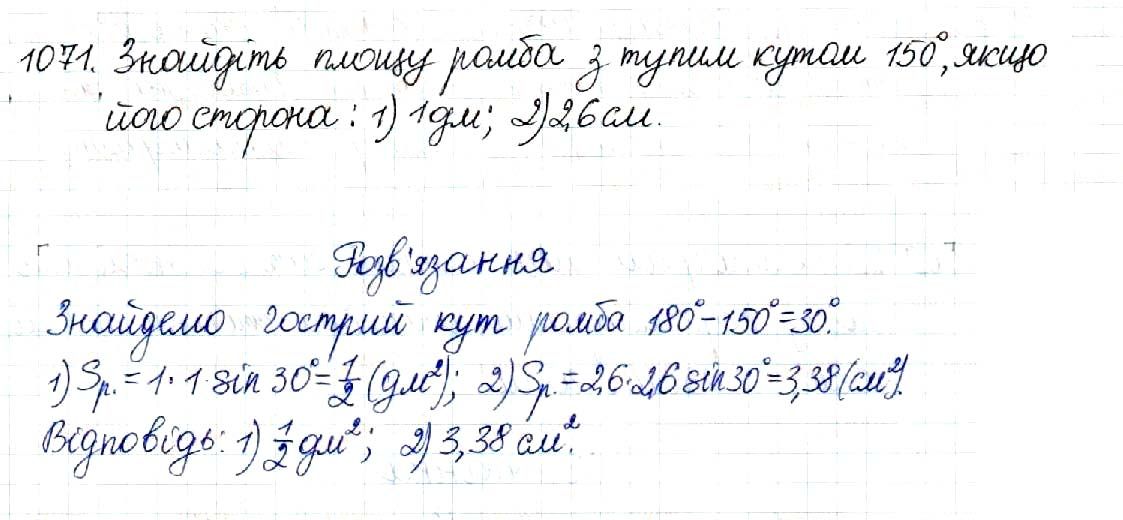 1071. Знайдіть площу ромба з тупим кутом 150°, якщо
його сторона: 1) 1 дм; 2) 2,6 см.
Розв'язання
Знайдемо гострий кут ромба 180° - 150° = 30°.
1) Sр. = 1 · 1 · sin 30° = 1/2 (дм²); 2) Sр. = 2,6 · 2,6 sin 30° = 3,38 (см²).
Відповідь: 1) 1/2 дм²; 2) 3,38 см².